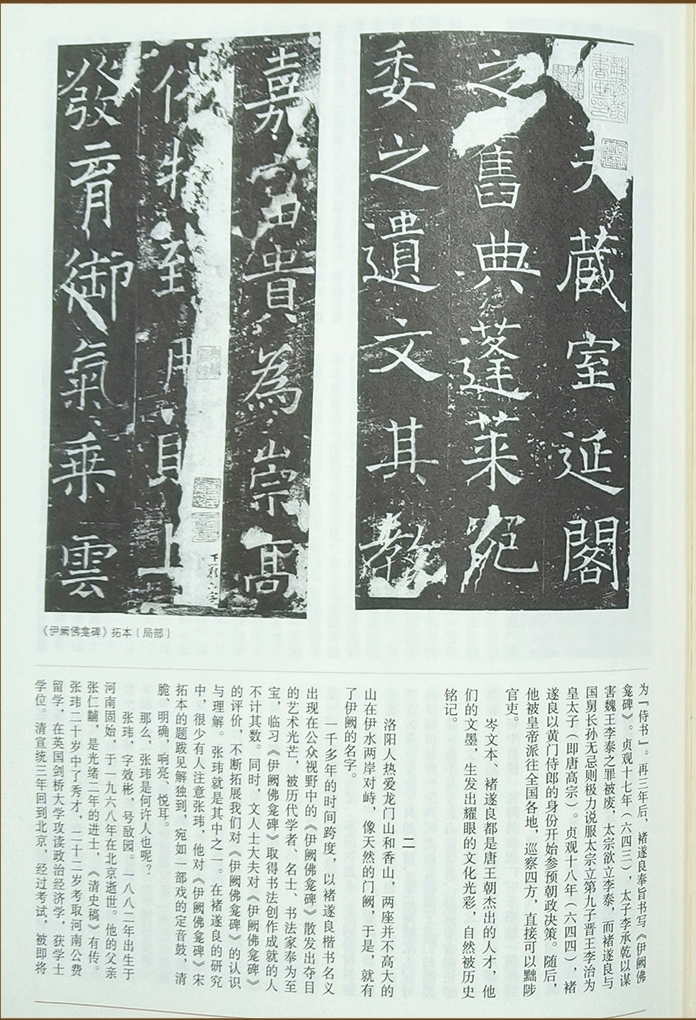 藏室延閣
之舊典蓬萊宛
委之遺文其教
嘉富貴為崇高
物用上
發育御氣乘雲
《伊阙佛龛碑》拓本（局部）
为『侍书』。再三年后，褚遂良奉旨书写《伊阙佛
龛碑》。贞观十七年（六四三），太子李承乾以谋
害魏王李泰之罪被废，太宗欲立李泰，而褚遂良与
国舅长孙无忌则极力说服太宗立第九子晋王李治为
皇太子（即唐高宗）。贞观十八年（六四四），褚
遂良以黄门侍郎的身份开始参预朝政决策。随后，
他被皇帝派往全国各地，巡察四方，直接可以黜陟
官吏。
岑文本、褚遂良都是唐王朝杰出的人才，他
们的文墨，生发出耀眼的文化光彩，自然被历史
铭记。
二
洛阳人热爱龙门山和香山，两座并不高大的
山在伊水两岸对峙，像天然的门阙，于是，就有
了伊阙的名字。
一千多年的时间跨度，以褚遂良楷书名义
出现在公众视野中的《伊阙佛龛碑》散发出夺目
的艺术光芒，被历代学者、名士、书法家奉为至
宝，临习《伊阙佛龛碑》取得书法创作成就的人
不计其数。同时，文人士大夫对《伊阙佛龛碑》
的评价，不断拓展我们对《伊阙佛龛碑》的认识
与理解。张玮就是其中之一。在褚遂良的研究
中，很少有人注意张玮，他对《伊阙佛龛碑》宋
拓本的题跋见解独到，宛如一部戏的定音鼓，清
脆、明确，响亮、悦耳。
那么，张玮是何许人也呢？
张玮，字效彬，号敔园。一八八二年出生于
河南固始，于一九六八年在北京逝世。他的父亲
张仁黼，是光绪二年的进士，《清史稿》有传。
张玮二十岁中了秀才，二十二岁考取河南公费
留学，在英国剑桥大学攻读政治经济学，获学士
学位。清宣统三年回到北京，经过考试，被即将